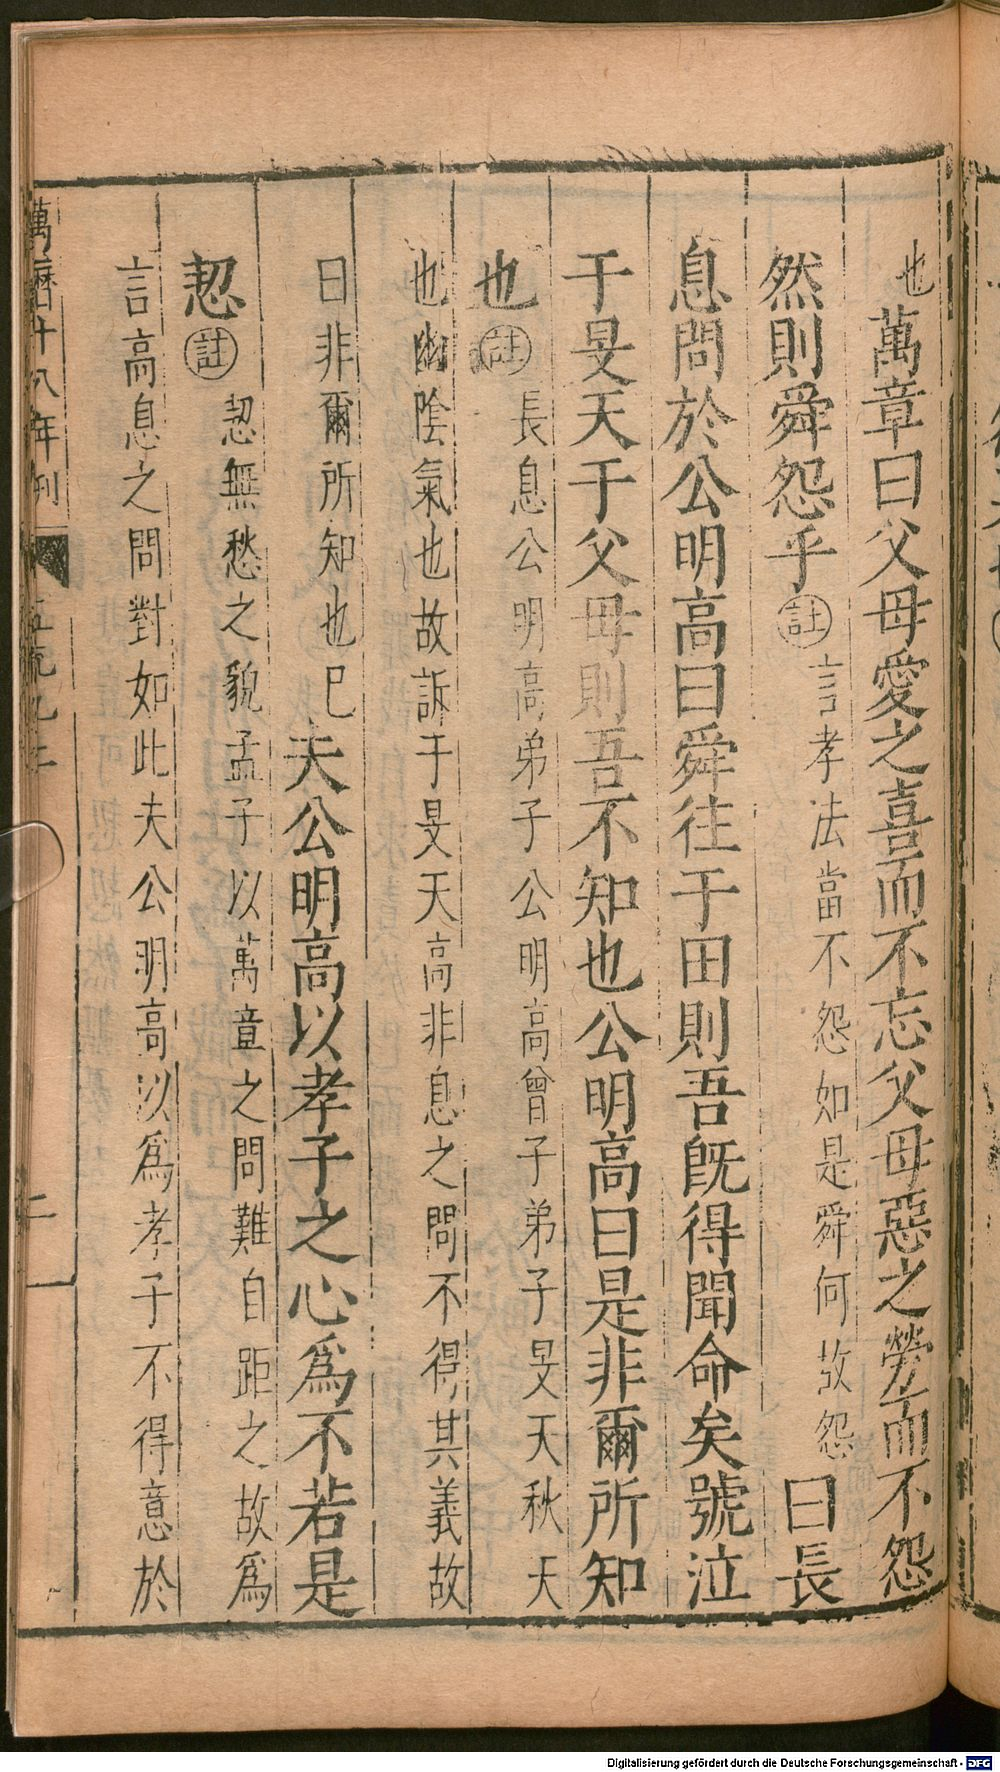 也萬章曰父母愛之喜而不忘父母惡之勞而不怨
然則舜怨乎註言孝法當不怨如是舜何故怨曰長
息問於公明高曰舜往于田則吾旣得聞命矣號泣
于旻天于父母則吾不知也公明高曰是非爾所知
也註長息公明高弟子公明高曾子弟子旻天秋天
也幽陰氣也故訴于旻天高非息之問不得其義故
曰非爾所知也已夫公明高以孝子之心爲不若是
恝註恝無愁之貌孟子以萬章之問難自距之故爲
言高息之問對如此夫公明高以爲孝子不得意於
萬曆十八年刊
二
Digitalisierung gefördert durch die Deutsche Forschungsgemeinschaft - DFG